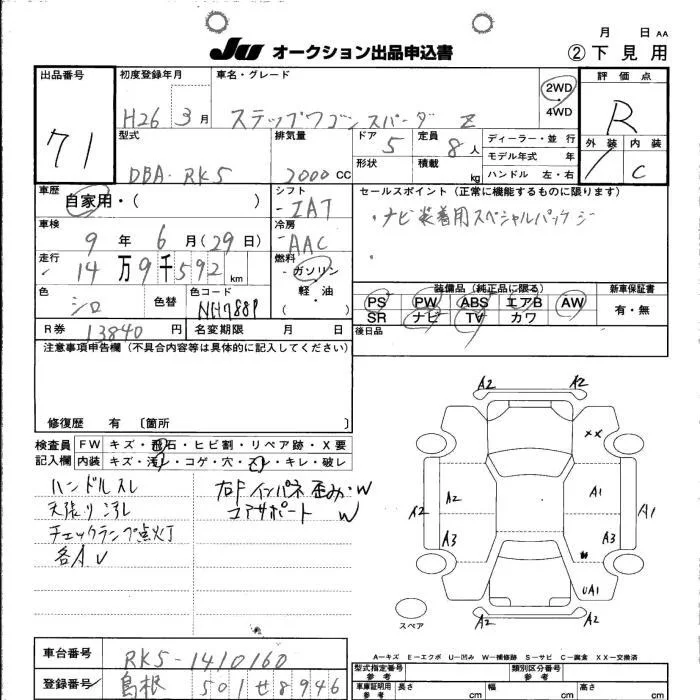 月 日 AA
JU オークション出品申込書 ②下見用
出品番号 初度登録年月 車名・グレード 2WD・4WD 評価点
71 H26 3月 ステップワゴンスパーダ Z R
型式 排気量 ドア 5 定員 8人 ディーラー・並行 外装 内装
DBA-RK5 2000cc 形状 積載 kg モデル年式 年 C
ハンドル 左・右
車歴 自家用・( ) シフト IAT セールスポイント(正常に機能するものに限ります)
・ナビ装着用スペシャルパッケージ
車検 9年6月(29日) 冷房 AAC
走行 14万9千592km 燃料 ガソリン・軽・油 ( )
色 シロ 色替 色コード NH788P
装備品(純正品に限る) 新車保証書
PS PW ABS エアB AW 有・無
SR ナビ TV カワ
R券 13840円 名変期限 月 日 後日品
注意事項申告欄(不具合内容等は具体的に記入してください)
修復歴 有 〔箇所 〕
検査員記入欄 FW キズ・飛石・ヒビ割・リペア跡・X要
内装 キズ・汚レ・コゲ・穴・スレ・キレ・破レ
ハンドルスレ
天張り汚レ
チェックランプ点灯
各AU
右Fインパネ歪み・W
コアサポート W
A2 A2
XX
A2 A2 A1 A1
A3 A3
UA1
A2 A2
スペア
A-キズ E-エクボ U-凹み W-補修跡 S-サビ C-腐食 XX-交換済
車台番号 RK5-1410160
登録番号 島根 501せ8946
型式指定番号 参考 類別区分番号 参考
車車証明用 参考 長さ cm 幅 cm 高さ cm